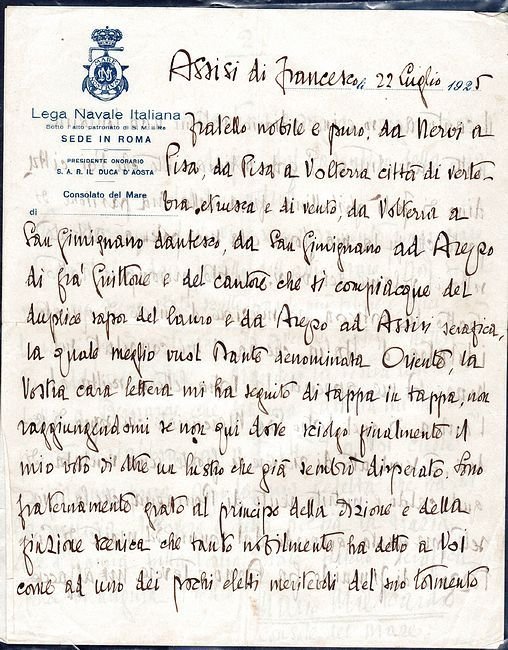 Assisi di Francesco, 22 Luglio 1925
Lega Navale Italiana
Sotto l'alto patronato di S. M. il Re
SEDE IN ROMA
PRESIDENTE ONORARIO
S. A. R. IL DUCA D'AOSTA
Consolato del Mare
di
Fratello nobile e puro, da Nervi a
Pisa, da Pisa a Volterra città di verte-
bra etrusca e di vento, da Volterra a
San Gimignano dantesco, da San Gimignano ad Arezzo
di fra' Guittone e del cantore che si compiacque del
duplice sapor del lauro e da Arezzo ad Assisi serafica,
la quale meglio vuol Dante denominata Oriente, la
Vostra cara lettera mi ha seguito di tappa in tappa, non
raggiungendomi se non qui dove sciolgo finalmente il
mio voto di oltre un lustro che già sembrò disperato. Sono
fraternamente grato al principe della dizione e della
finzione scenica che tanto nobilmente ha detto a Voi
come ad uno dei pochi eletti meritevoli del suo tormento